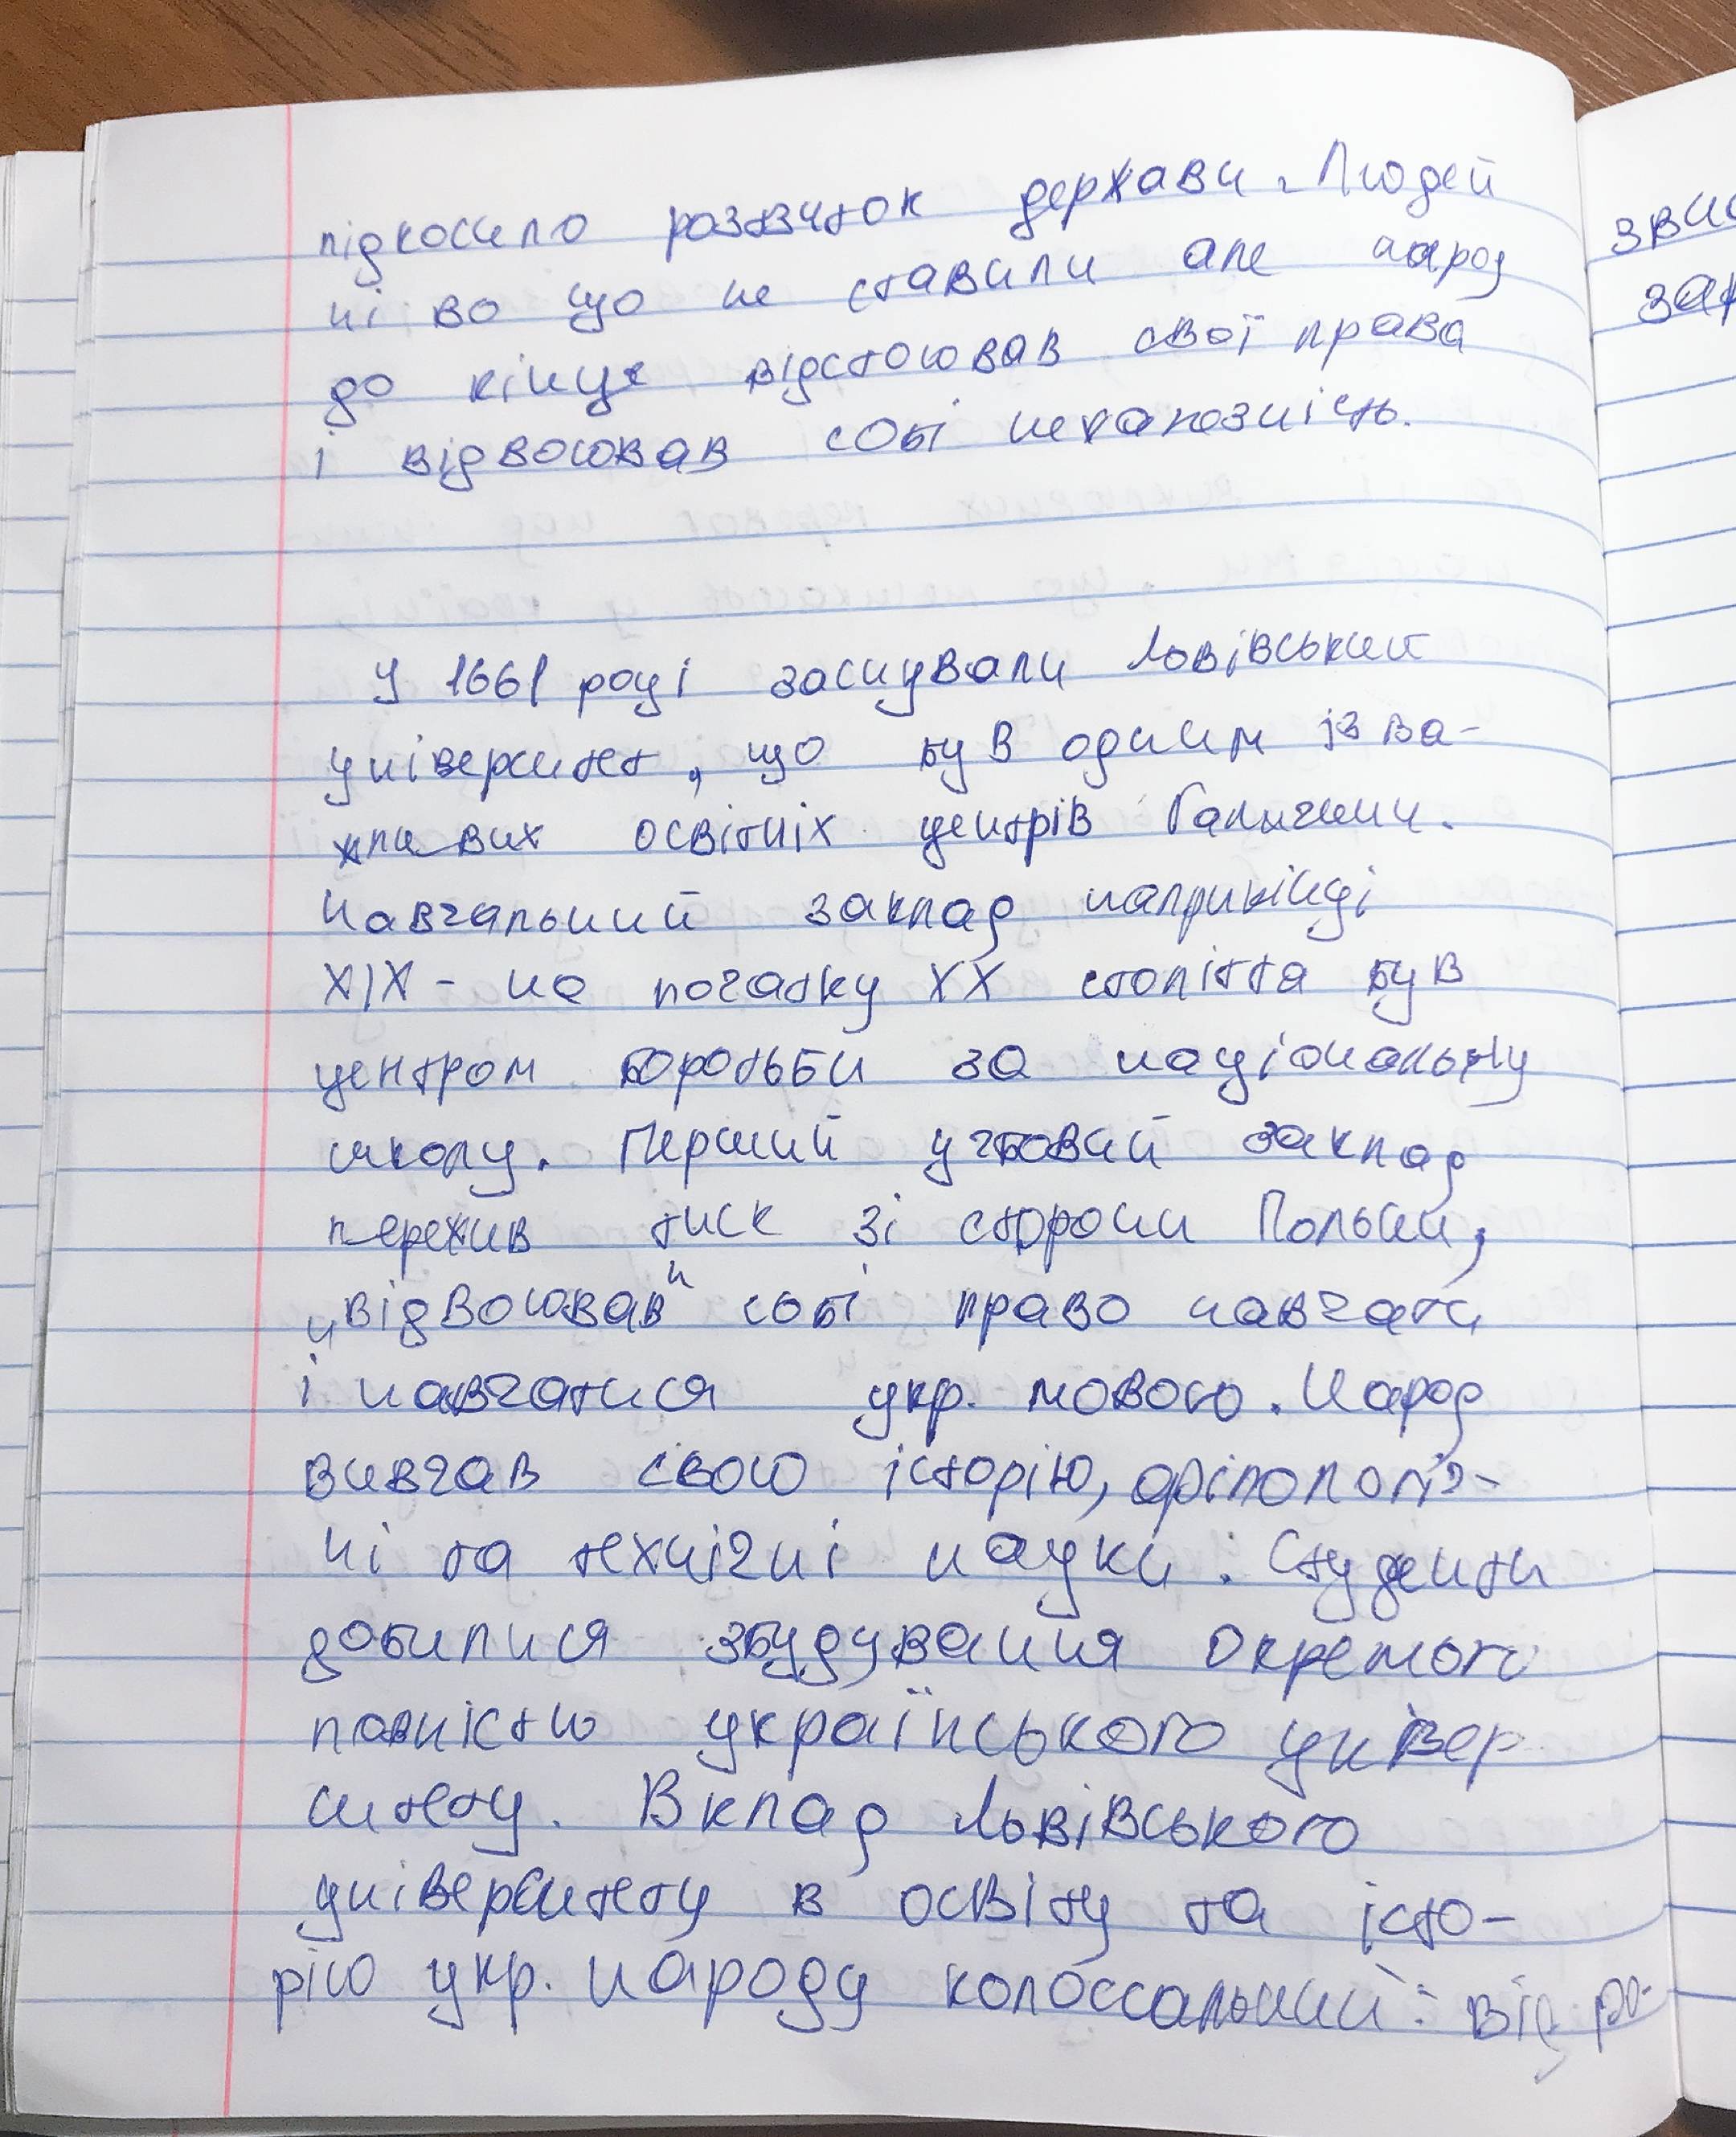 підкосило розвиток держави. Людей
ні во що не ставили але народ
до кінця відстоював свої права
і відвоював собі незалежність.
У 1661 році заснували Львівський
університет, що був одним із ва-
жливих освітніх центрів Галичини.
Навчальний заклад наприкінці
XIX - на початку XX століття був
центром боротьби за національну
школу. Перший учбовий заклад
пережив тиск зі сторони Польщи,
„відвоював" собі право навчати
і навчатися укр. мовою. Народ
вивчав свою історію, філологіч-
ні та технічні науки. Студенти
добилися збудування окремого
повністю українського універ
ситету. Вклад Львівського
університету в освіту та істо-
рію укр. народу колоссальний: від ро-
зви